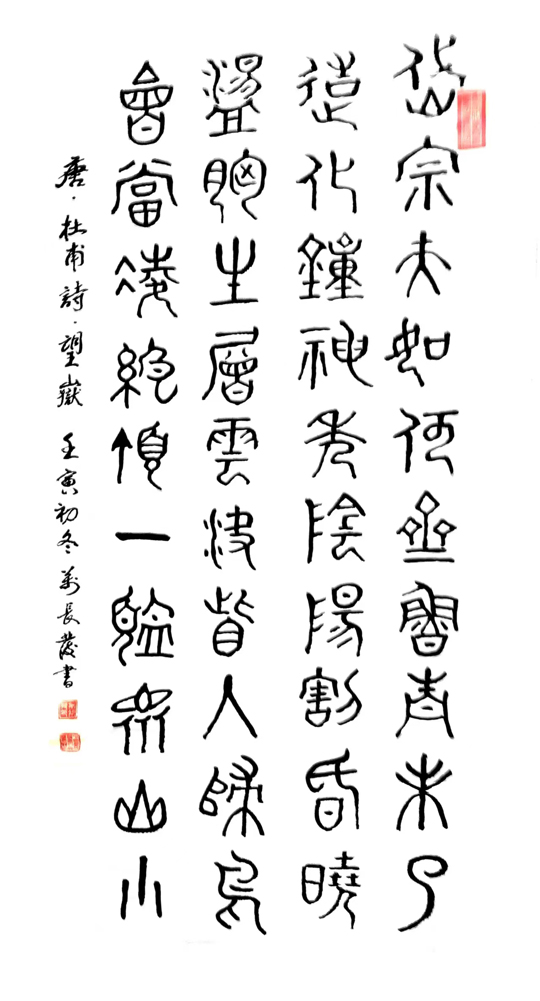 岱宗夫如何齊魯青未了
造化鐘神秀陰陽割昏曉
盪胸生層雲決眥入歸鳥
會當凌絕頂一覽衆山小
唐·杜甫詩·望嶽 壬寅初冬 萬長發書